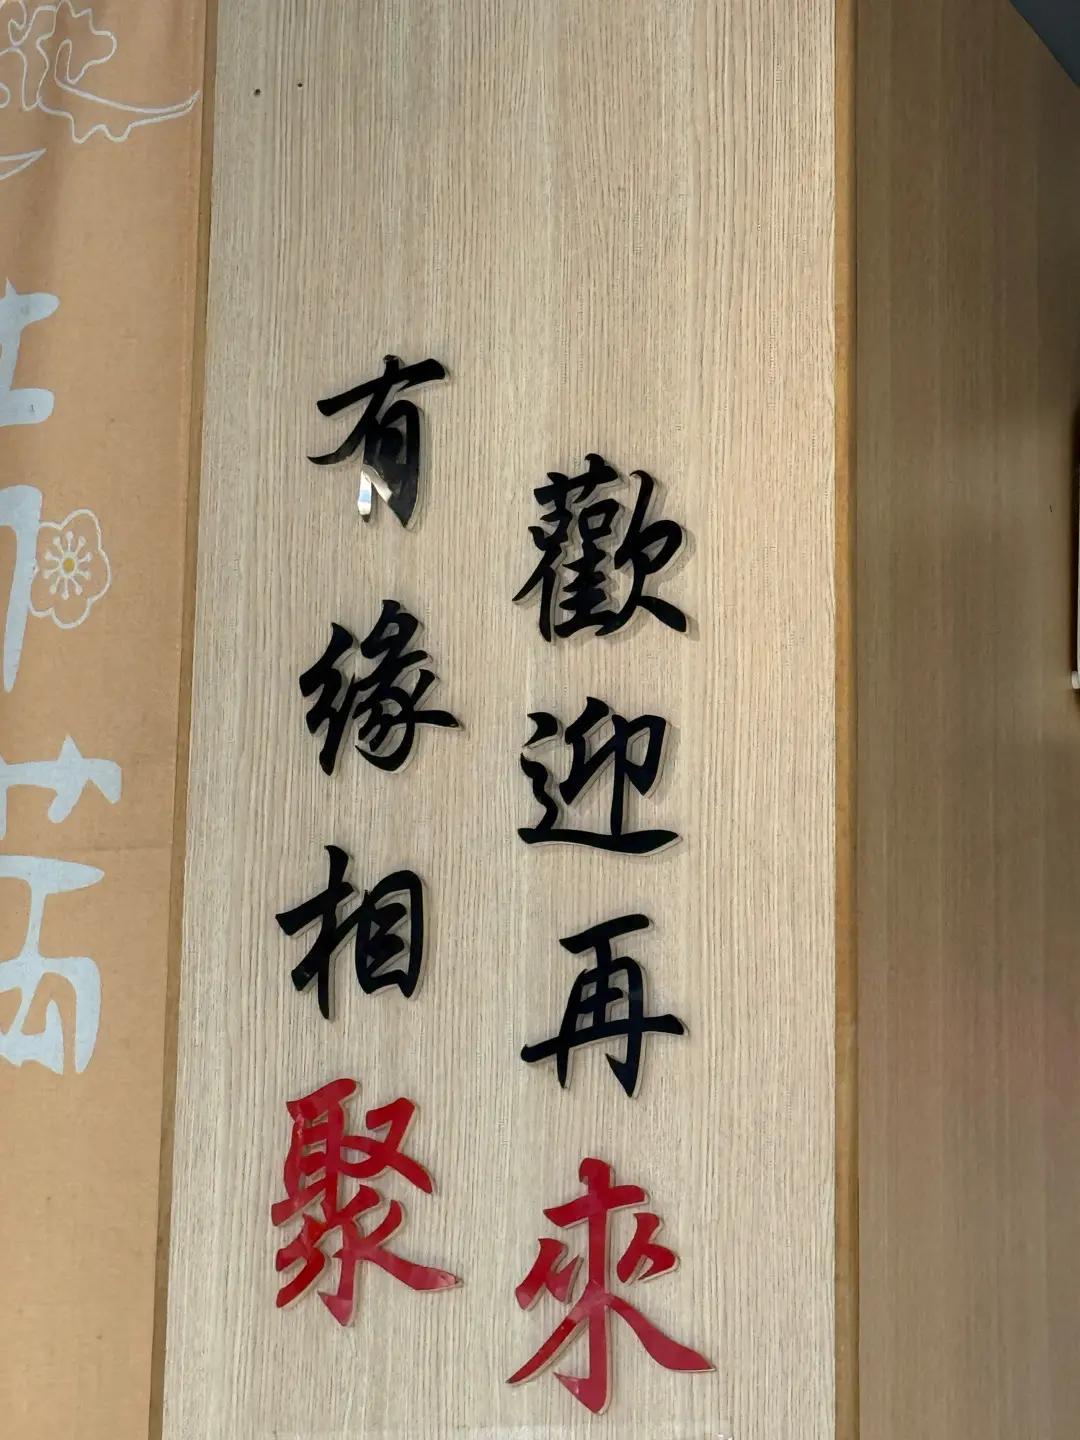 有緣相聚
歡迎再來